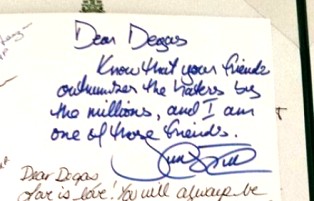 Dear Degas
Know that your friends
outnumber the haters by
the millions, and I am
one of those friends.
Dear Degas
love is love! You will always be